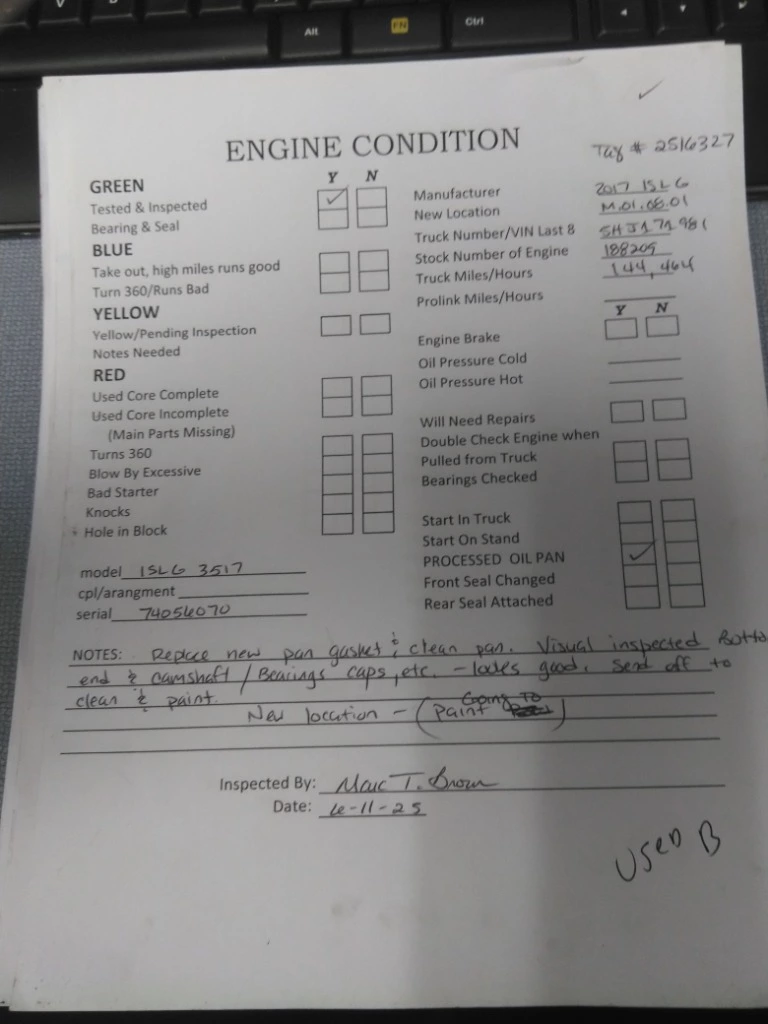 Alt FN Ctrl
ENGINE CONDITION
Tag # 2516327
Y N
GREEN
Tested & Inspected
Bearing & Seal
BLUE
Take out, high miles runs good
Turn 360/Runs Bad
YELLOW
Yellow/Pending Inspection
Notes Needed
RED
Used Core Complete
Used Core Incomplete
(Main Parts Missing)
Turns 360
Blow By Excessive
Bad Starter
Knocks
Hole in Block
model ISLG 3517
cpl/arangment
serial 74054070
Manufacturer 2017 ISLG
New Location M.01.08.01
Truck Number/VIN Last 8
Stock Number of Engine 188209
Truck Miles/Hours 144,464
Prolink Miles/Hours
Y N
Engine Brake
Oil Pressure Cold
Oil Pressure Hot
Will Need Repairs
Double Check Engine when
Pulled from Truck
Bearings Checked
Start In Truck
Start On Stand
PROCESSED OIL PAN
Front Seal Changed
Rear Seal Attached
NOTES: Replace new pan gasket & clean pan. Visual inspected Botto
end & camshaft / Bearings caps, etc. - looks good. Send off to
clean & paint.
New location - (Going To Paint)
Inspected By: Marc T. Brown
Date: 6-11-25
USED B